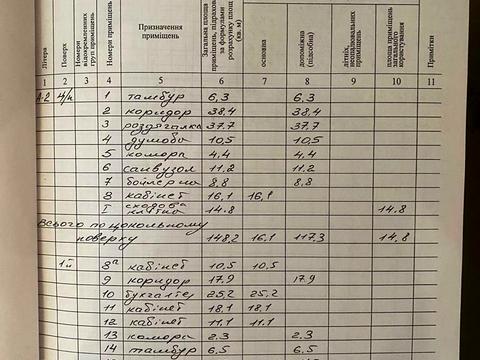 Літера
Поверх
Номери відокремлених груп приміщень
Номери приміщень
Призначення приміщень
Загальна площа приміщень, підрахована за формулами розрахунку площ (кв. м)
основна
допоміжна (підсобна)
літніх, неопалюваних приміщень
площа приміщень загального користування
Примітки
1 2 3 4 5 6 7 8 9 10 11
А-2 ц/п 1 тамбур 6,3 6,3
2 коридор 38,4 38,4
3 роздягалка 37.7 37.7
4 душова 10,5 10,5
5 комора 4,4 4,4
6 санвузол 11.2 11.2
7 бойлерна 8.8 8.8
8 кабінет 16,1 16,1
I сходова клітка 14.8 14.8
Всього по цокольному
поверху 148,2 16,1 117,3 14.8
1й 8а кабінет 10,5 10,5
9 коридор 17.9 17.9
10 бухгалтер 25,2 25,2
11 кабінет 18,1 18,1
12 кабінет 11,1 11,1
13 комора 2.3 2.3
14 тамбур 6,5 6.5